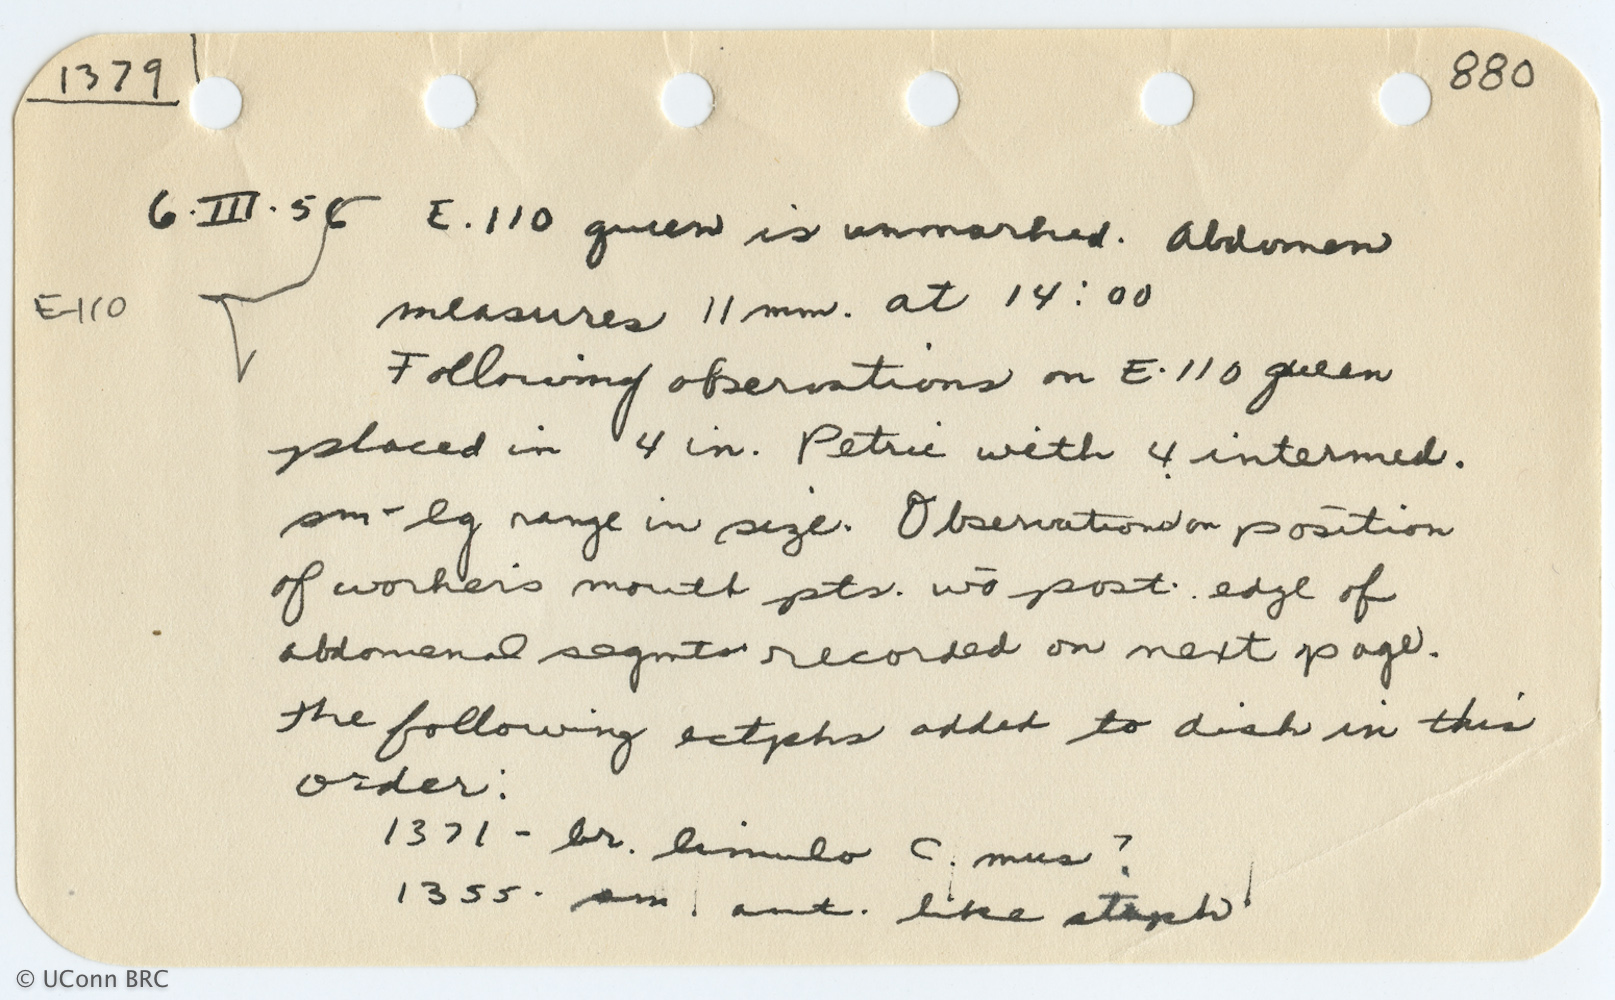 1379
880
6.III.56 E.110 queen is unmarked. Abdomen
E-110
measures 11 mm. at 14:00
Following observations on E.110 queen
placed in 4 in. Petrie with 4 intermed.
sm-lg range in size. Observations on position
of workers mouth pts. post. edge of
abdomenal segmts recorded on next page.
The following ectphs added to dish in this
order:
1371 - br. limulo C. mus?
1355. sm ant. like staph
© UConn BRC